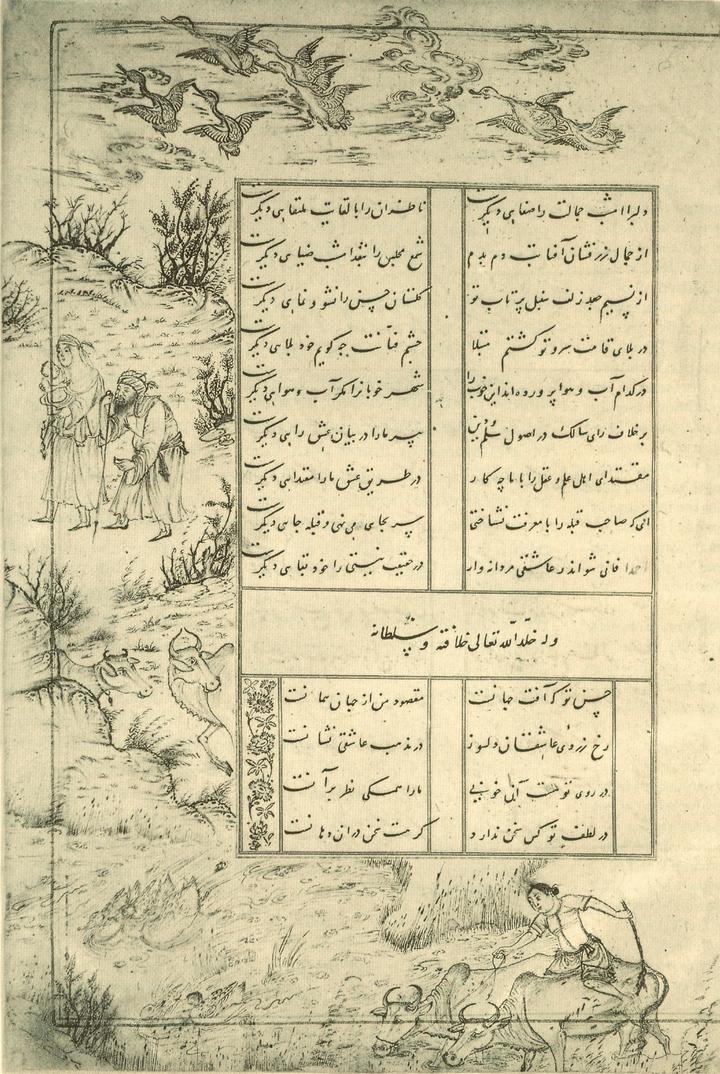 دلبرا امشب جمالت را صفایی دیگرست ناظران را با لقایت ملتقایی دیگرست
از جمال زرفشان آفتابت دم بدم شمع مجلس را شب ضیایی دیگرست
از نسیم جعد زلف سنبل پرتاب تو گلستان حسن را نشو و نمایی دیگرست
در بلای قامت سرو تو گشتم مبتلا چشم فتانت چه گویم خود بلایی دیگرست
در کدام آب و هوا پرورده‌اند این خوب را شهر خوبانرا مگر آب و هوایی دیگرست
بر خلاف رای سالک در اصول علم و دین پیر ما را در بیان عشق رایی دیگرست
مقتدای اهل علم و عقل را با ما چه کار در طریق عشق ما را مقتدایی دیگرست
ای که صاحب قبله را با معرفت نشناختی سر بجایی می‌نهی و قبله جایی دیگرست
فانی شو اندر عاشقی مردانه وار در حقیقت نیستی را خود بقایی دیگرست
وله خلد الله تعالی خلافته و سلطانه
حسن تو که آفت جهانست مقصود من از جهان همانست
رخ زردی عاشقان دلسوز در مذهب عاشقی نشانست
در روی تو هست آن خوبی ما را همگی نظر بر آنست
در لطف تو کس سخن ندارد گر هست سخن در آن دهانست